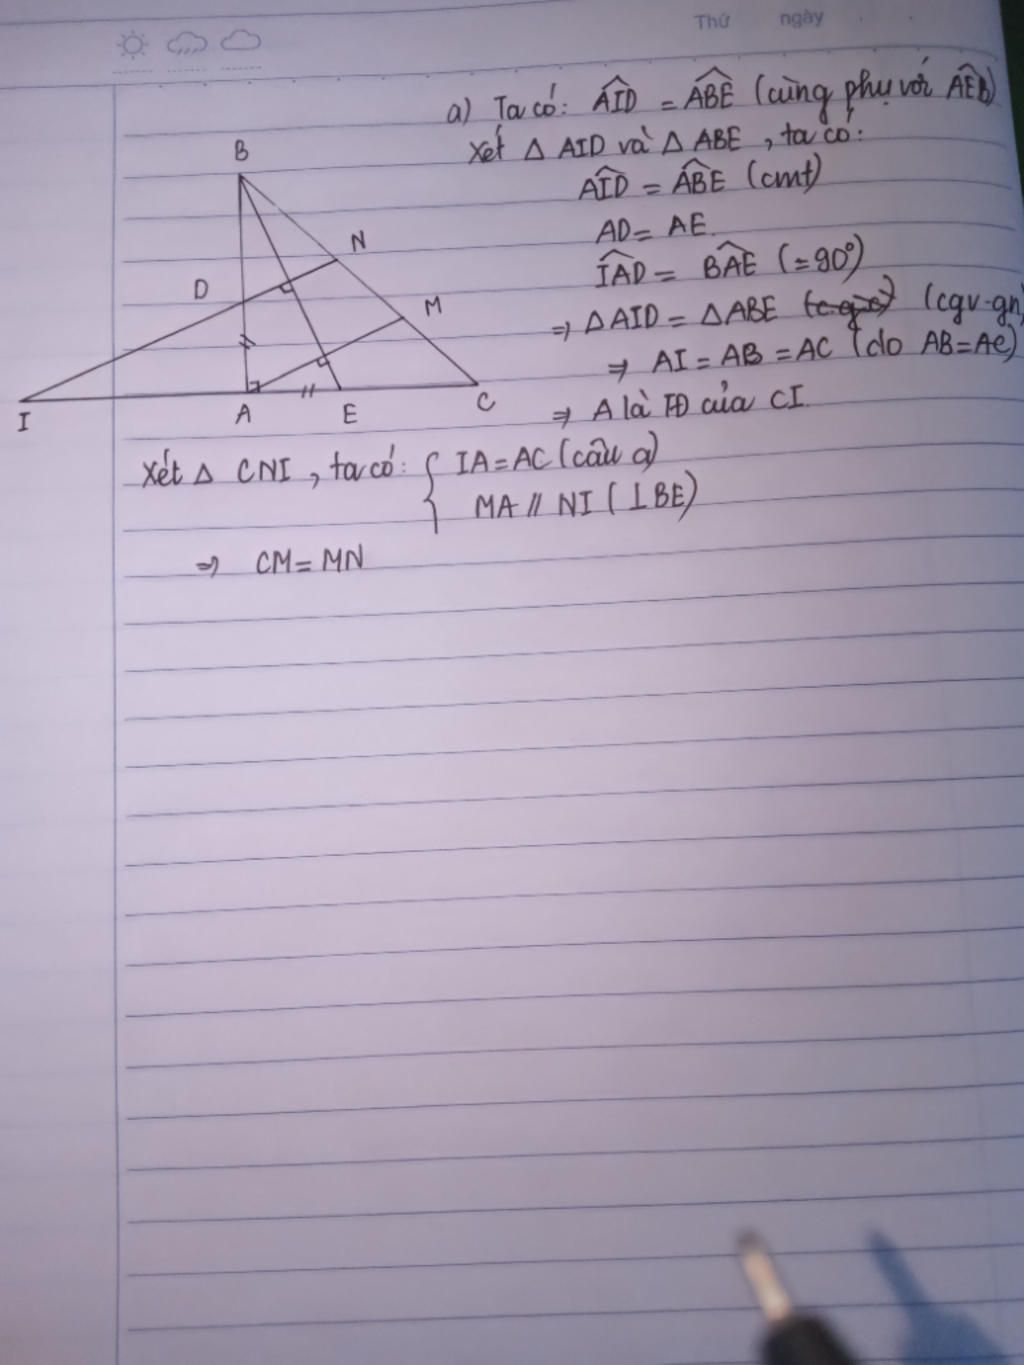 Thứ ngày
a) Ta có: AID̂ = ABÊ (cùng phụ với AEB̂)
Xét Δ AID và Δ ABE, ta có:
AID̂ = ABÊ (cmt)
AD = AE.
IAD̂ = BAÊ (= 90°)
⇒ ΔAID = ΔABE (cgv-gn)
⇒ AI = AB = AC (do AB = AC)
⇒ A là TĐ của CI.
B
N
D
M
I
A
E
C
Xét Δ CNI, ta có: { IA = AC (câu a)
MA // NI (⊥BE)
⇒ CM = MN